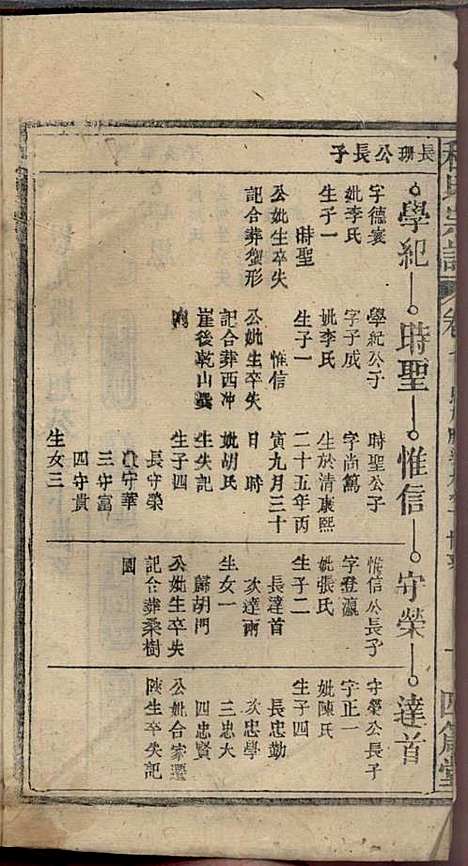 長珊公長子
學紀
時聖
惟信
守榮
達首
字德寰
妣李氏
生子一
時聖
公妣生卒失
記合葬蟹形
學紀公子
字子成
妣李氏
生子一
惟信
公妣生卒失
記合葬西冲
崖後乾山巽
時聖公子
字尚篤
生於清康熙
二十五年丙
寅九月三十
日時
妣胡氏
生失記
生子四
長守榮
守華
三守富
四守貴
生女三
惟信公長子
字登瀛
妣張氏
生子二
長達首
次達兩
生女一
歸胡門
公妣生卒失
記合葬桑樹
園
守榮公長子
字正一
妣陳氏
生子四
長忠勤
次忠學
三忠大
四忠賢
公妣合家遷
陝生卒失記